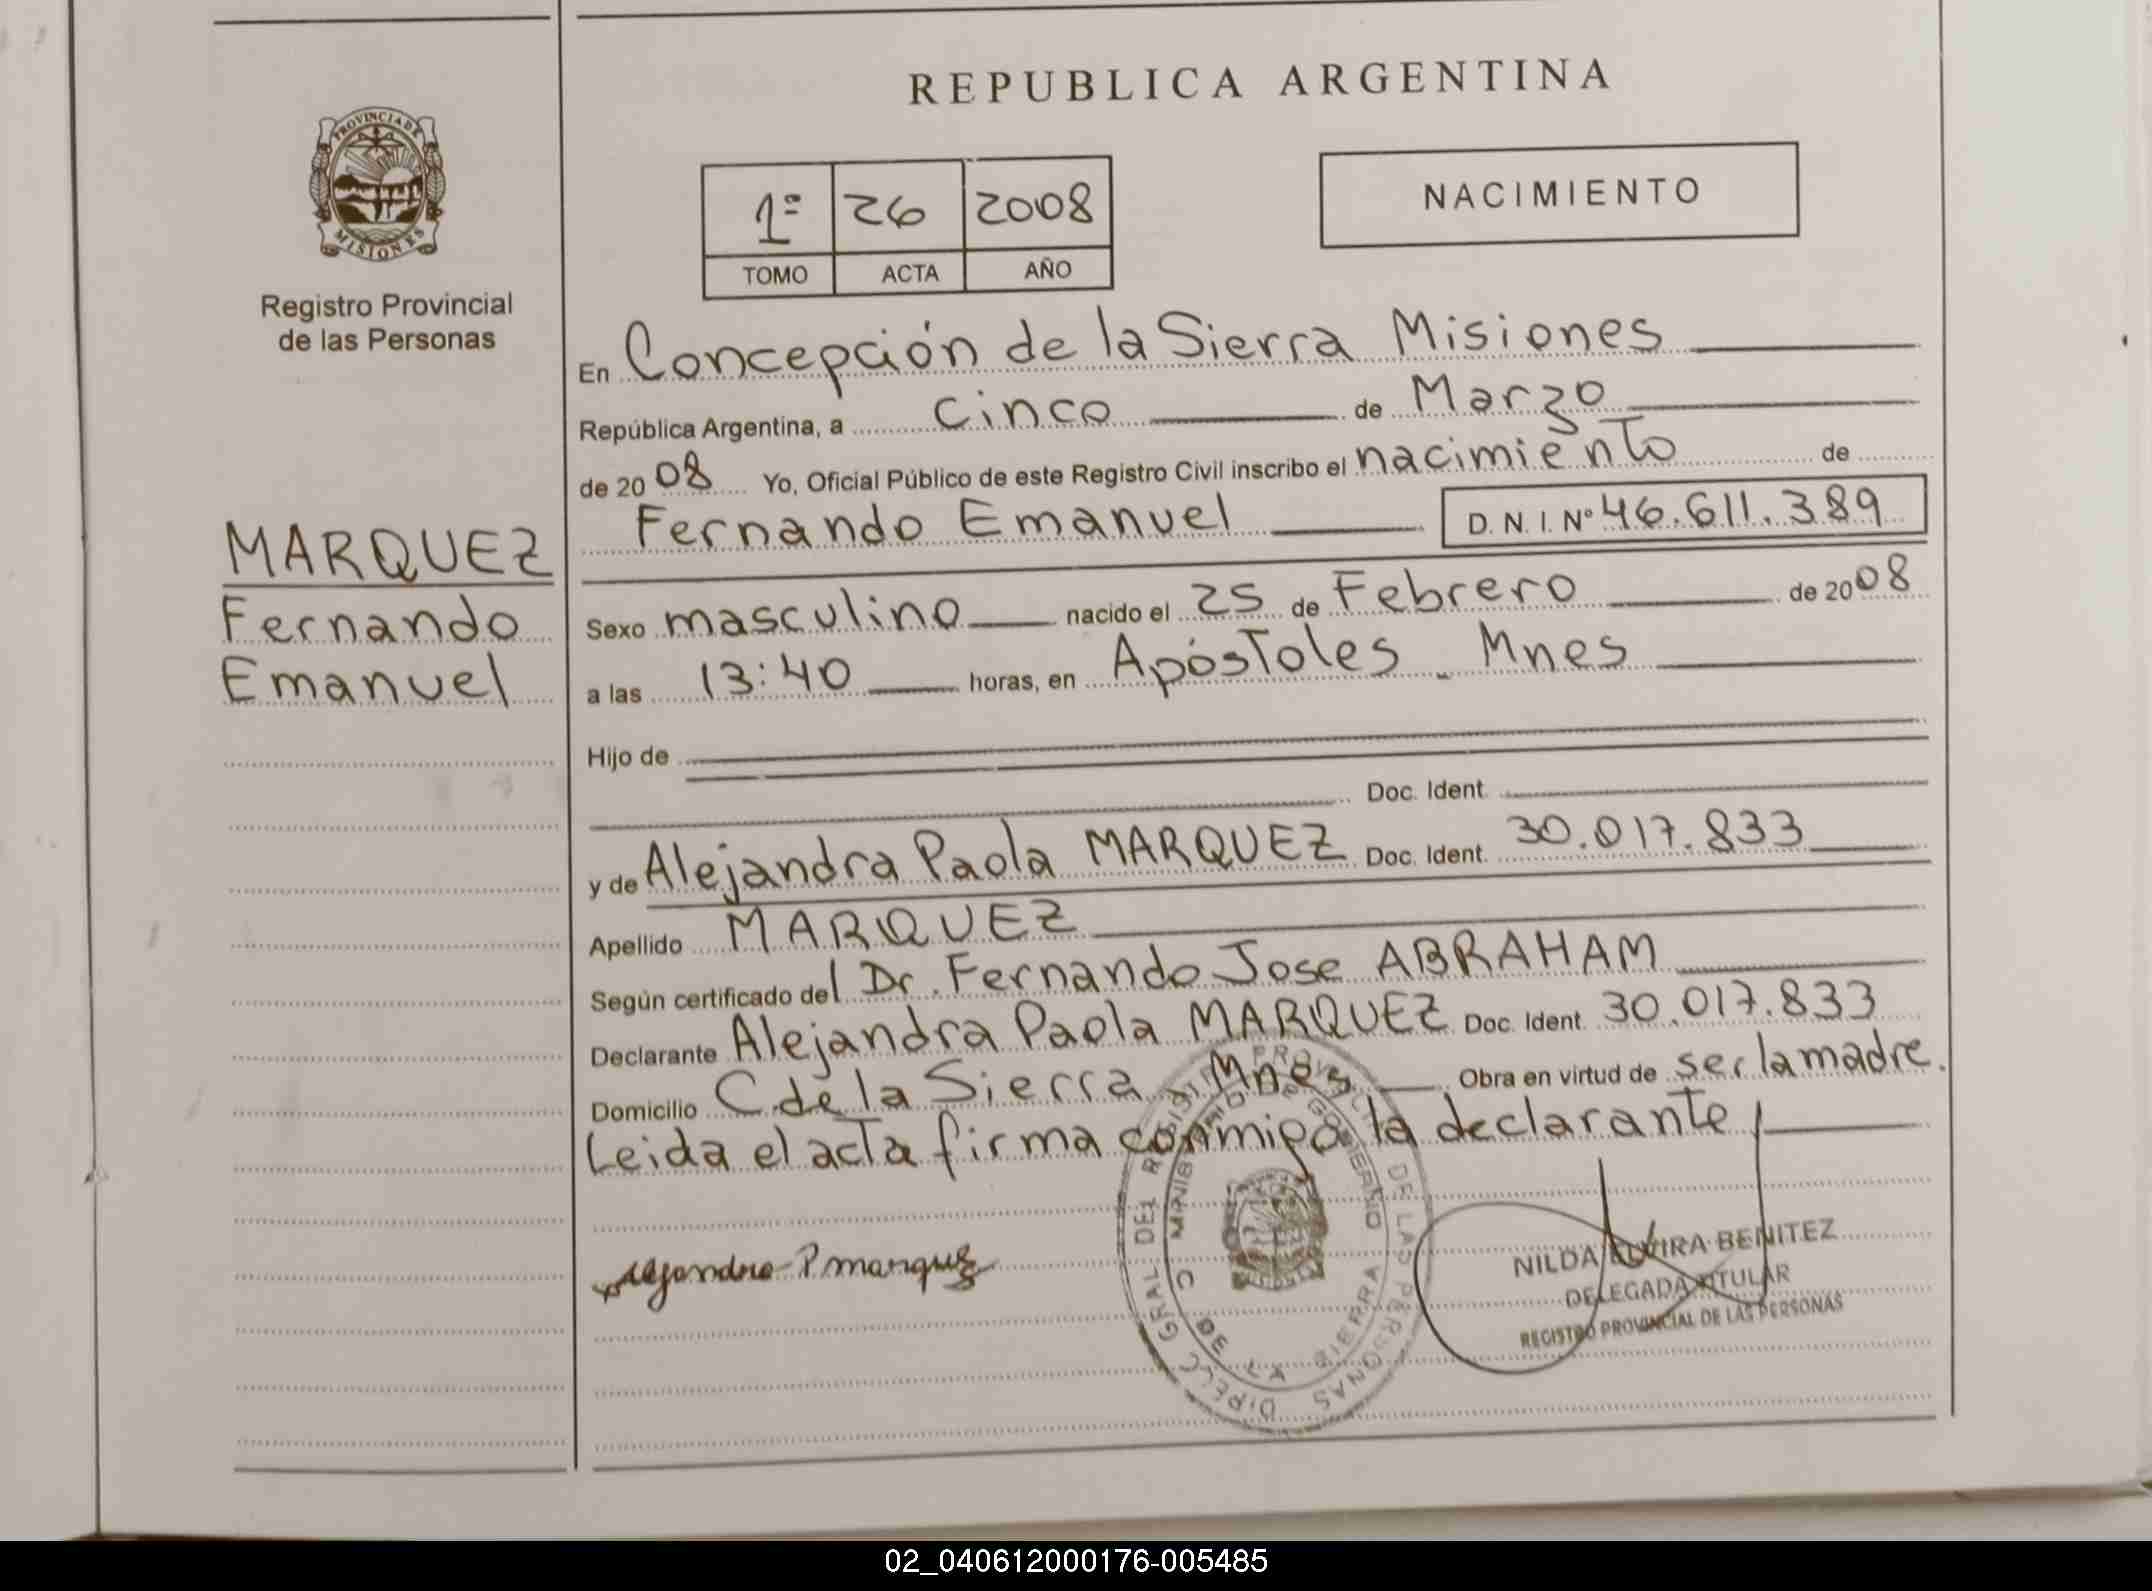 REPUBLICA ARGENTINA
PROVINCIA DE
MISIONES
Registro Provincial
de las Personas
1º 26 2008
TOMO ACTA AÑO
NACIMIENTO
MARQUEZ
Fernando
Emanuel
En Concepción de la Sierra Misiones
República Argentina, a cinco de Marzo
de 2008 Yo, Oficial Público de este Registro Civil inscribo el nacimiento de
Fernando Emanuel D.N.I.Nº 46.611.389
Sexo masculino nacido el 25 de Febrero de 2008
a las 13:40 horas, en Apóstoles - Mnes
Hijo de
Doc. Ident.
y de Alejandra Paola MARQUEZ Doc. Ident. 30.017.833
Apellido MARQUEZ
Según certificado del Dr. Fernando Jose ABRAHAM
Declarante Alejandra Paola MARQUEZ Doc. Ident. 30.017.833
Domicilio C de la Sierra Mnes Obra en virtud de ser la madre.
Leida el acta firma conmigo la declarante
Alejandra P marquez
GRAL DEL DE LAS PERSONAS
C DE LA SIERRA
NILDA ELVIRA BENITEZ
DELEGADA TITULAR
REGISTRO PROVINCIAL DE LAS PERSONAS
02_040612000176-005485